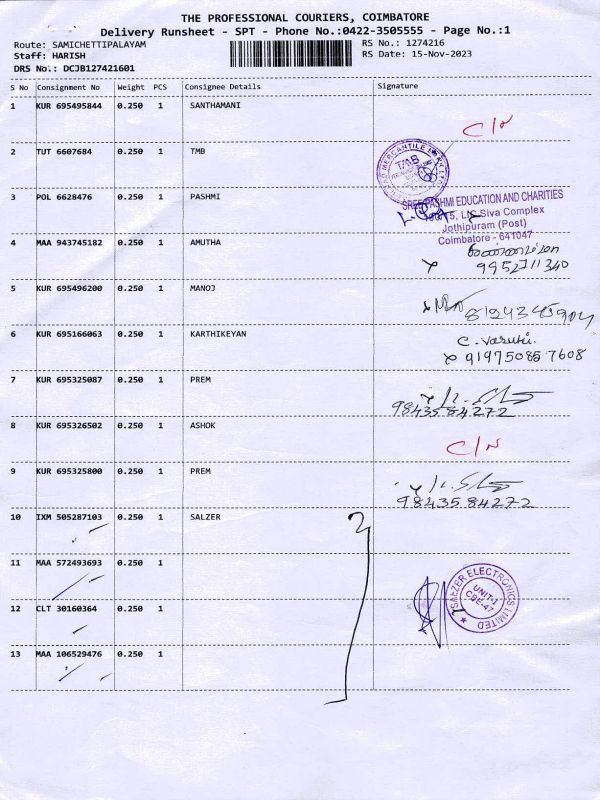 THE PROFESSIONAL COURIERS, COIMBATORE
Delivery Runsheet - SPT - Phone No.:0422-3505555 - Page No.:1
Route: SAMICHETTIPALAYAM RS No.: 1274216
Staff: HARISH RS Date: 15-Nov-2023
DRS No.: DCJB127421601
S No Consignment No Weight PCS Consignee Details Signature
1 KUR 695495844 0.250 1 SANTHAMANI
C/N
2 TUT 6607684 0.250 1 TMB
TMB
3 POL 6628476 0.250 1 PASHMI
EDUCATION AND CHARITIES
Siva Complex
Jothipuram (Post)
Coimbatore - 641047
4 MAA 943745182 0.250 1 AMUTHA
9952711340
5 KUR 695496200 0.250 1 MANOJ
6 KUR 695166063 0.250 1 KARTHIKEYAN
C. Vasuki
919750857608
7 KUR 695325087 0.250 1 PREM
9843584272
8 KUR 695326502 0.250 1 ASHOK
C/N
9 KUR 695325800 0.250 1 PREM
9843584272
10 IXM 505287103 0.250 1 SALZER
11 MAA 572493693 0.250 1
SALZER ELECTRONICS LIMITED
UNIT-1
CBE-47
12 CLT 30160364 0.250 1
13 MAA 106529476 0.250 1